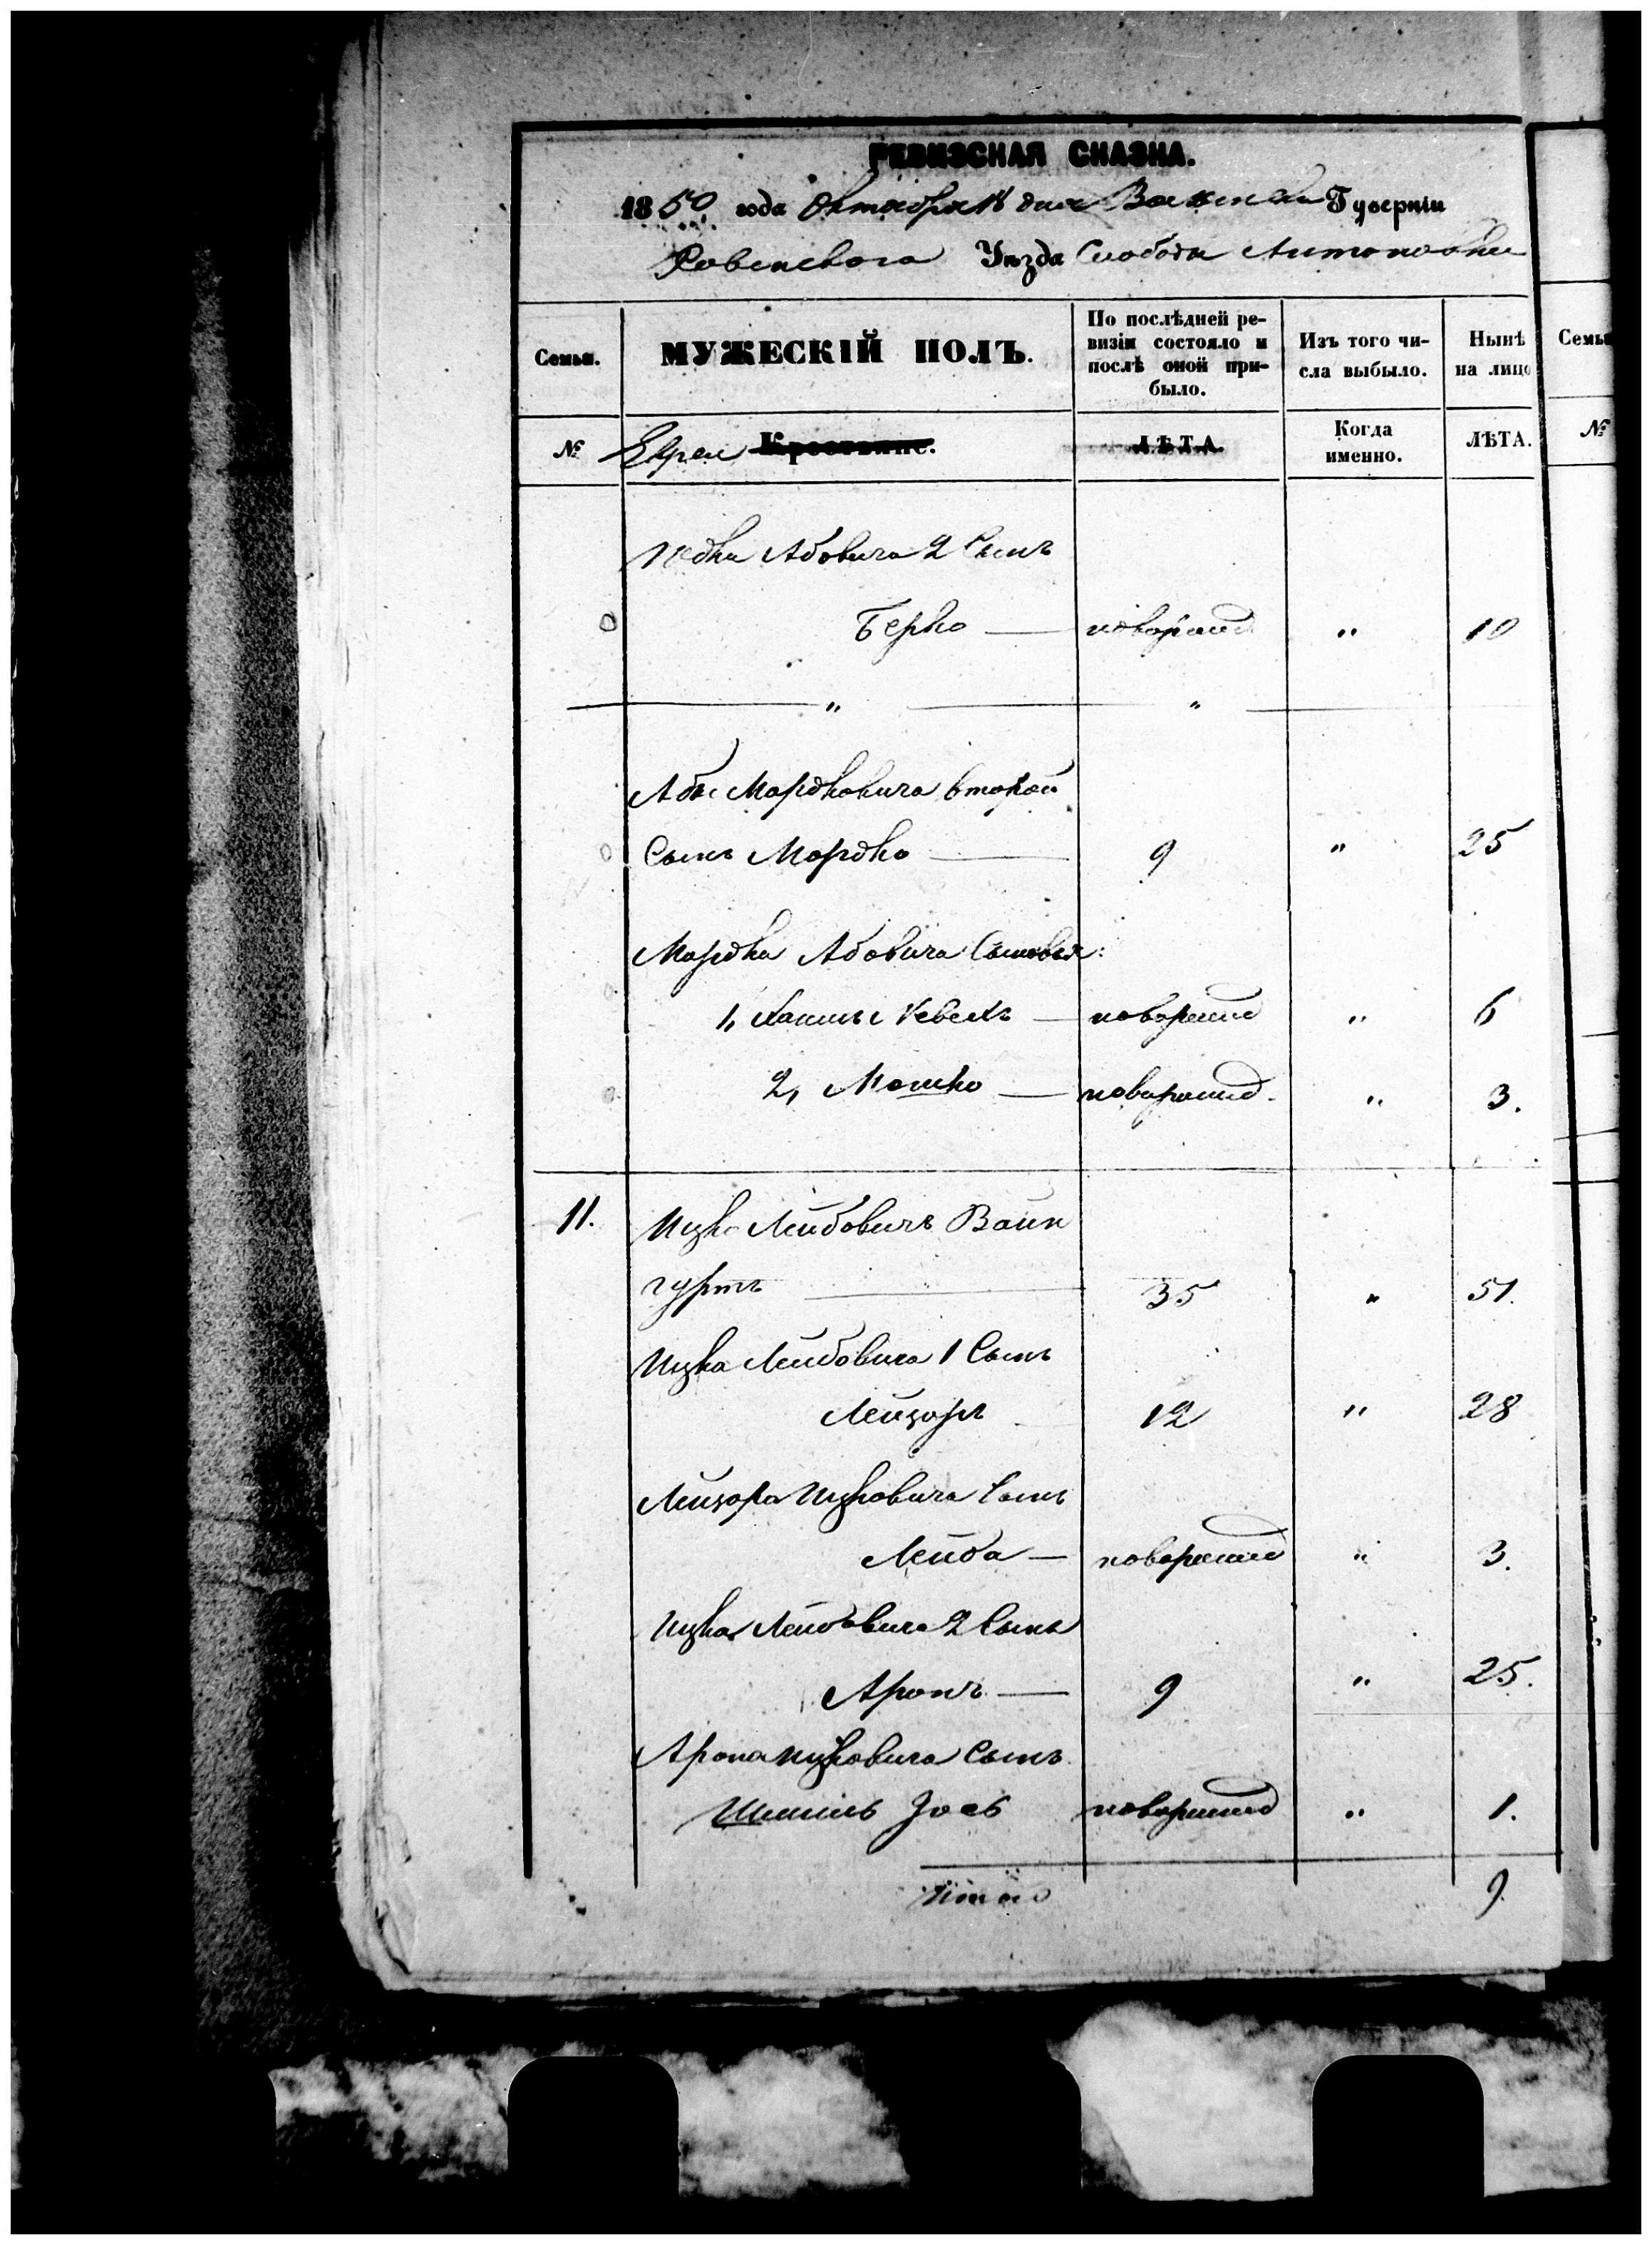 РЕВИЗСКАЯ СКАЗКА.
1850 года Октября дня Волынской Губерніи
Ровенскаго Уѣзда Слободы Антоновки
Семьи. МУЖЕСКІЙ ПОЛЪ. По послѣдней ре-визіи состояло и послѣ оной при-было. Изъ того чи-сла выбыло. Нынѣ на лицо Семьи
№ Евреи Крестьяне. ЛѢТА. Когда именно. ЛѢТА. №
Абовича 2 Сынъ
Берко — новорожд " 10
" "
Абы Мордковича второй
Сынъ Мордко — 9 " 25
Мордка Абовича Сыновья:
1, — новорожд " 6
2, Мошко — новорожд. " 3.
11. Ицко Лейбовичъ Вайн
гуртъ — 35 " 51.
Ицка Лейбовича 1 Сынъ
Лейзоръ 12 " 28
Лейзора Ицковича Сынъ
Лейба — новорожд " 3.
Ицка Лейбовича 2 Сынъ
Аронъ — 9 " 25.
Арона Ицковича Сынъ
Іосъ новорожд " 1.
Итого 9